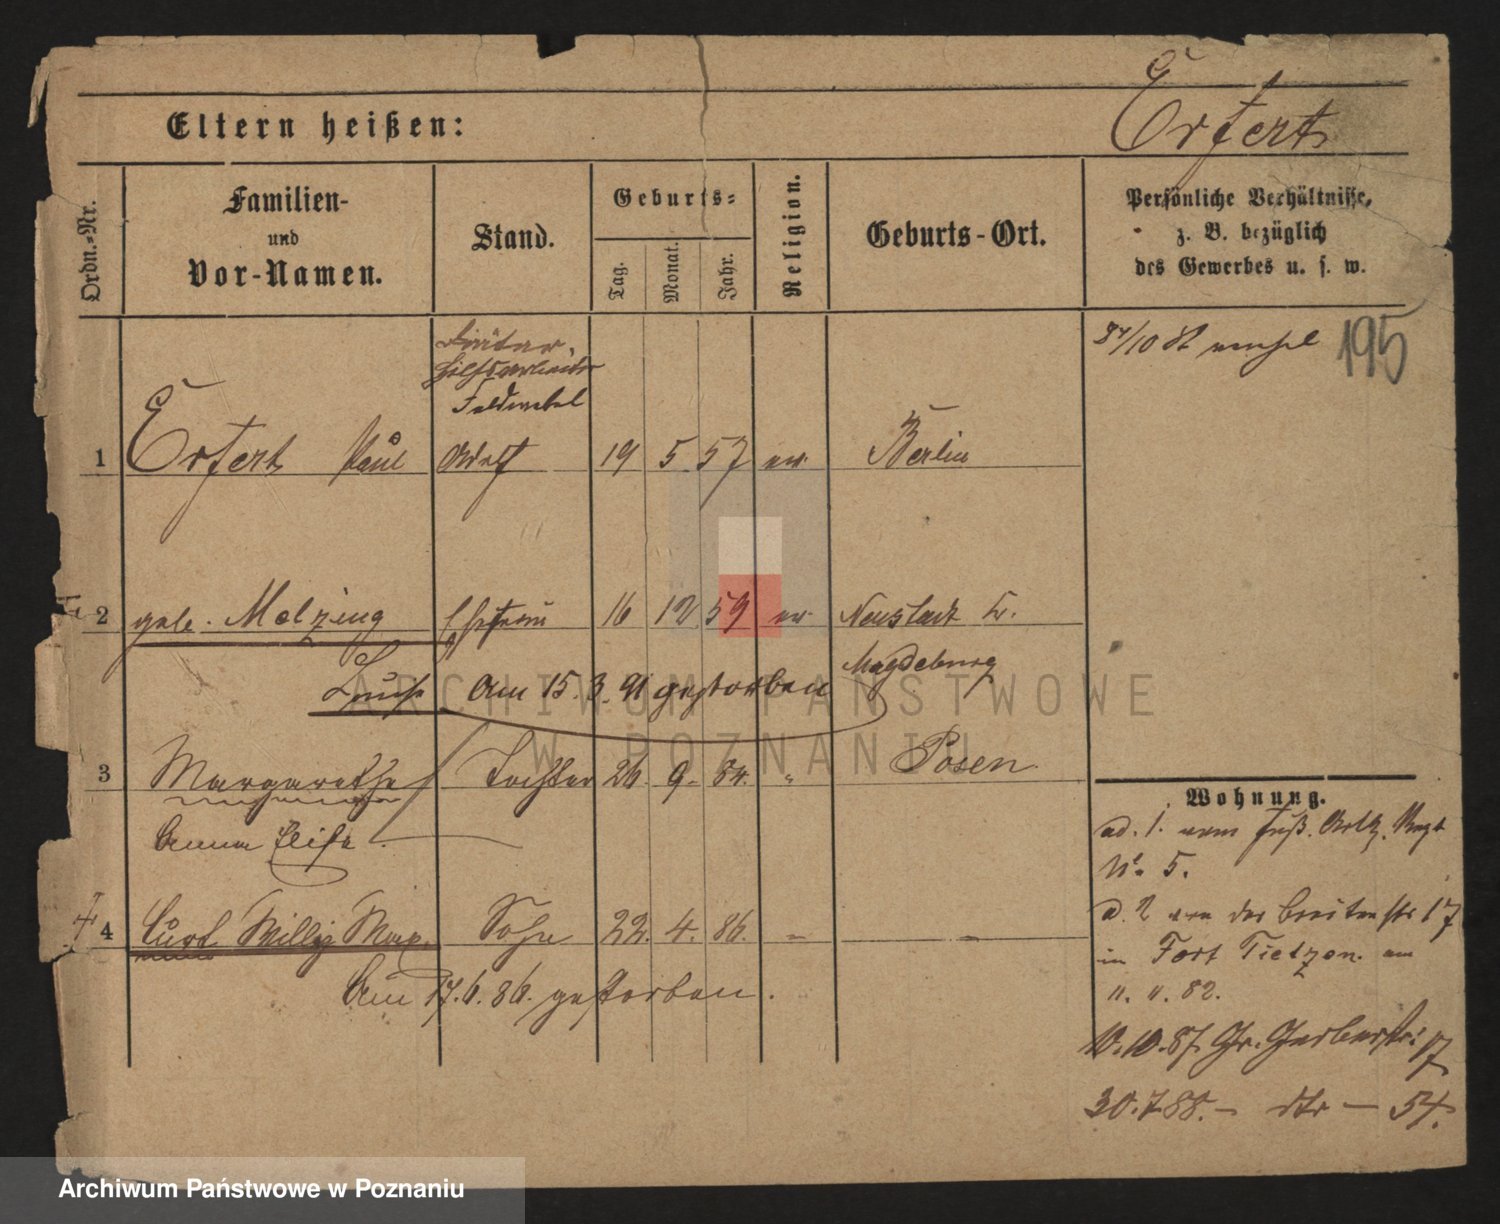 Erfert
Eltern heißen:
Ordn.-Nr.
Familien-
und
Vor-Namen.
Stand.
Geburts-
Tag.
Monat.
Jahr.
Religion.
Geburts-Ort.
Persönliche Verhältnisse,
z. B. bezüglich
des Gewerbes u. s. w.
195
Diätar
Hilfsarbeiter
Feldwebel
1 Erfert Paul 19 5. 57 ev. Berlin
2 geb. Melzing Ehefrau 16 12 59 ev. Neustadt b.
Magdeburg
Louise Am 15. 3. 91 gestorben
3 Margarethe Tochter 26. 9. 84. " Posen
Anna Elise
4 Curt Willy Max. Sohn 22. 4. 86. -
Am 17. 6. 86. gestorben.
Wohnung.
ad. 1. vom Fuß. Artl. Regt
No. 5.
ad. 2 von der Breitenstr 17
in Fort Tietzen. am
11. 11. 82.
10.10.87. Gr. Gerberstr: 17
30.7.88. – dto — 54.
ARCHIWUM PAŃSTWOWE
W POZNANIU
Archiwum Państwowe w Poznaniu